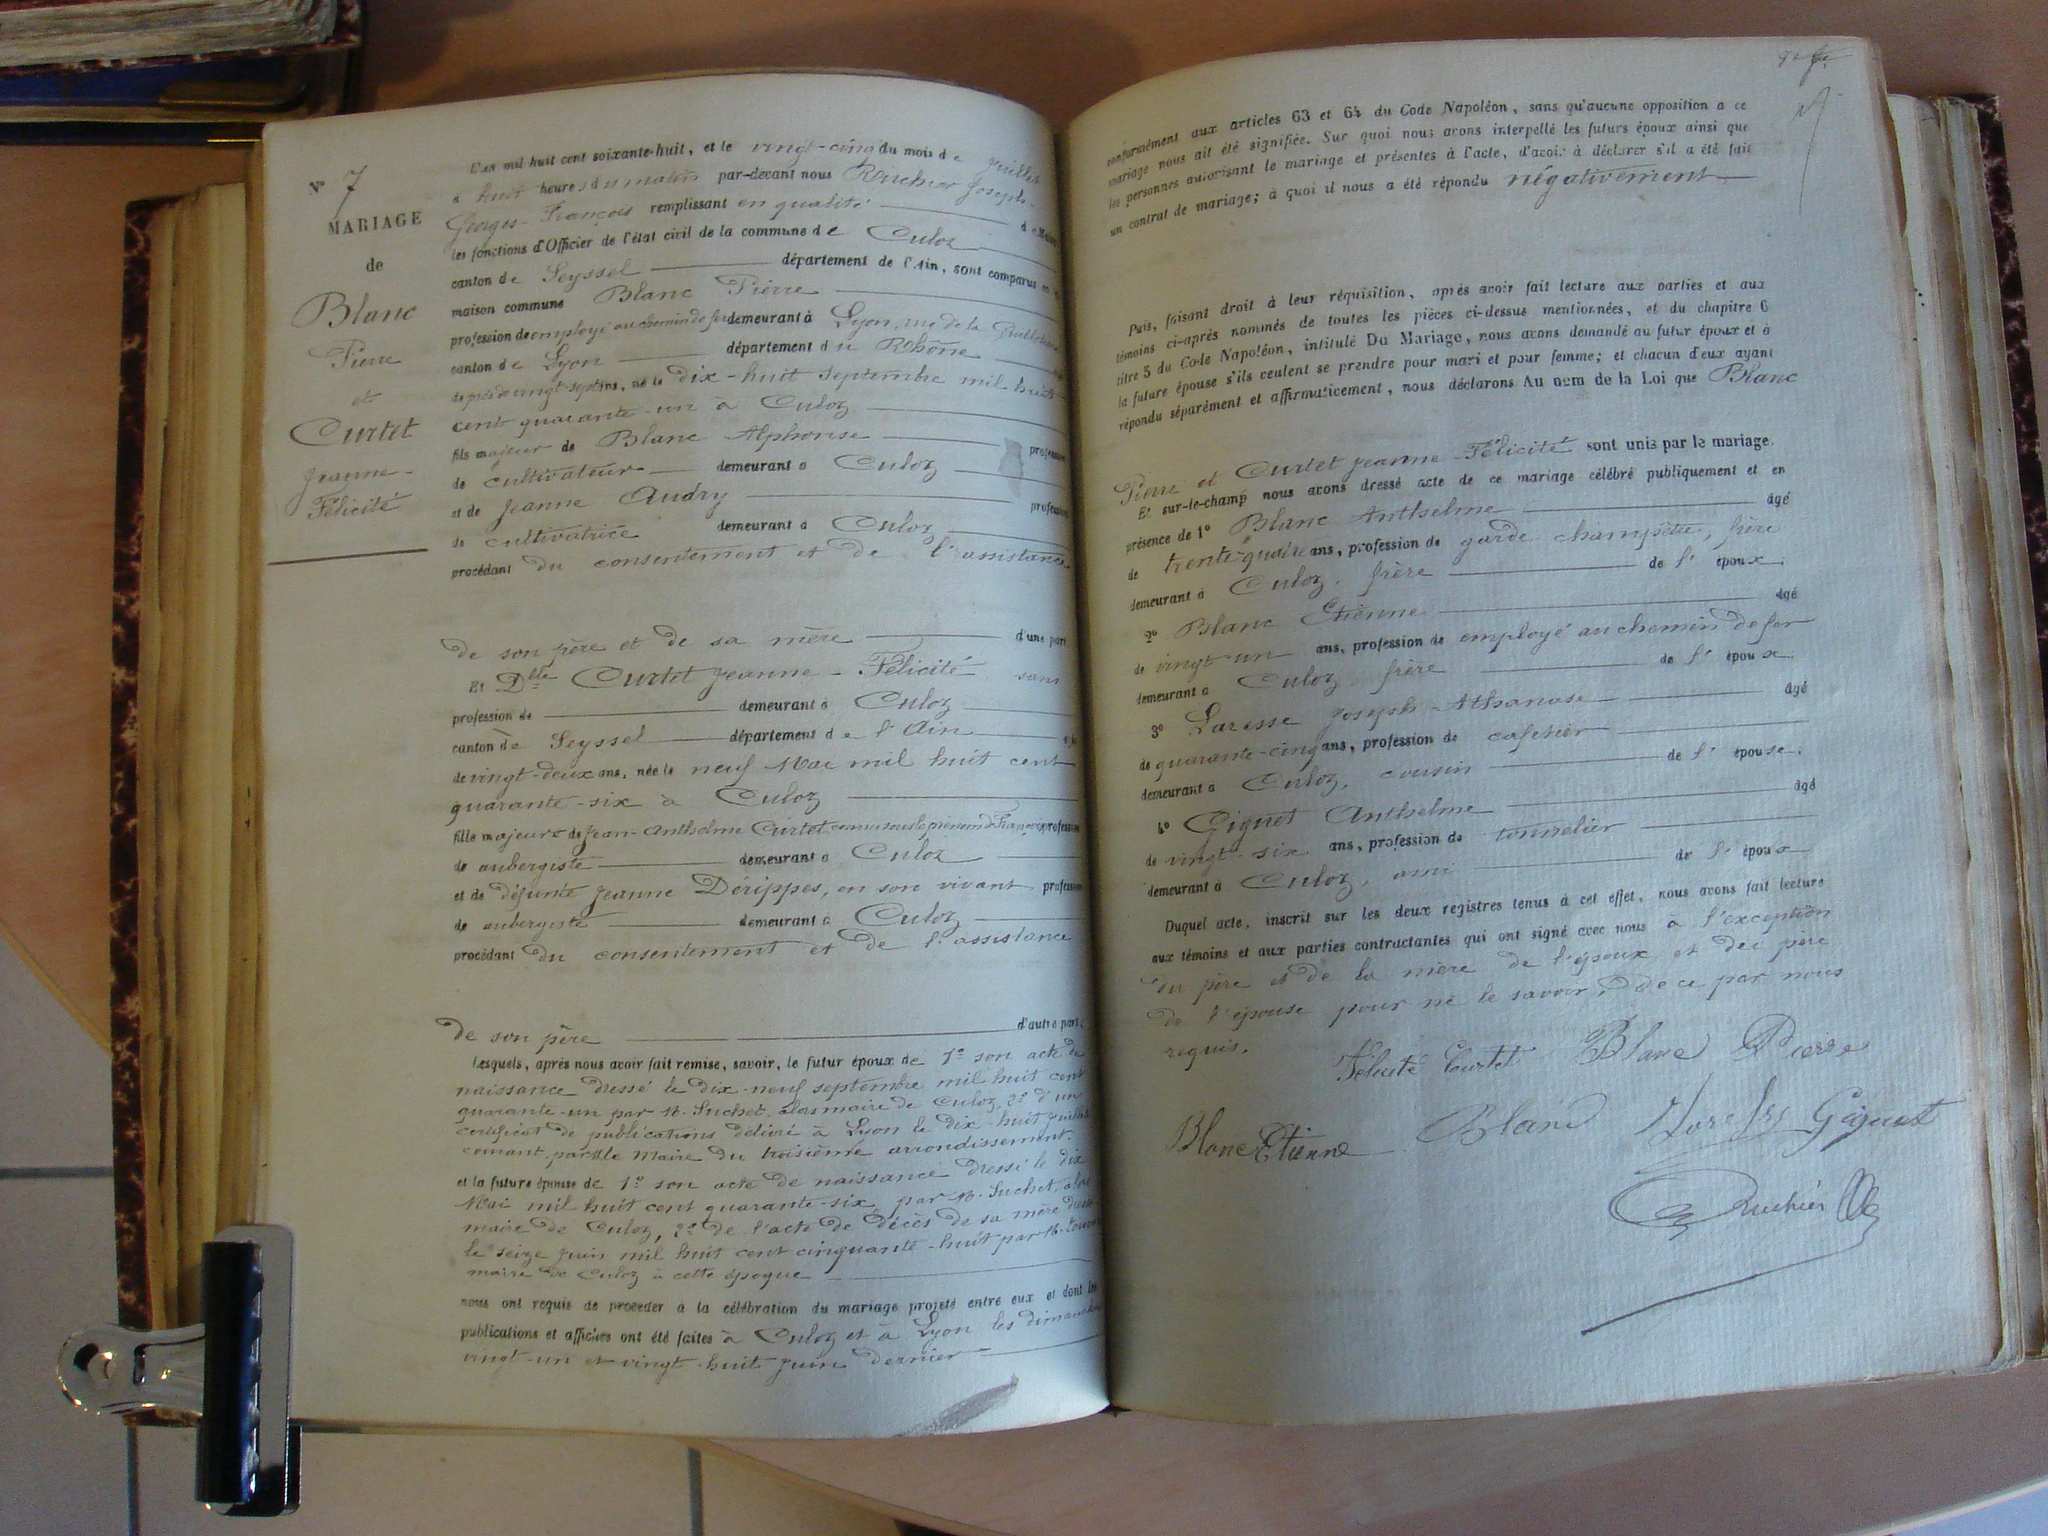 N° 7
MARIAGE
de
Blanc
Pierre
et
Curtet
Jeanne-
Félicité
L'an mil huit cent soixante-huit, et le vingt-cinq du mois de juillet
à huit heures du matin par-devant nous Joseph-
Georges-François remplissant en qualité de Maire
les fonctions d'Officier de l'état civil de la commune de Culoz
canton de Seyssel département de l'Ain, sont comparus en la
maison commune Blanc Pierre
profession de employé au chemin de fer demeurant à Lyon, rue de la
canton de Lyon département du Rhône
de près de vingt-sept ans, né le dix-huit septembre mil huit
cent quarante-un à Culoz
fils majeur de Blanc Alphonse profession
de cultivateur demeurant à Culoz
et de Jeanne Audry profession
de cultivatrice demeurant à Culoz
procédant du consentement et de l'assistance
de son père et de sa mère d'une part
Et Dlle Curtet Jeanne-Félicité sans
profession de demeurant à Culoz
canton de Seyssel département de l'Ain
de vingt-deux ans, née le neuf Mai mil huit cent
quarante-six à Culoz
fille majeure de Jean-Anthelme Curtet, connu sous le prénom de François profession
de aubergiste demeurant à Culoz
et de défunte Jeanne Dérippes, en son vivant profession
de aubergiste demeurant à Culoz
procédant du consentement et de l'assistance
de son père d'autre part;
Lesquels, après nous avoir fait remise, savoir, le futur époux de 1° son acte de
naissance dressé le dix-neuf septembre mil huit cent
quarante-un par M. Suchet, alors maire de Culoz, 2° d'un
certificat de publications délivré à Lyon le dix-huit juillet
courant, par Mr le Maire du troisième arrondissement.
et la future épouse de 1° son acte de naissance dressé le dix
Mai mil huit cent quarante-six, par M. Suchet, alors
maire de Culoz, 2° de l'acte de décès de sa mère dressé
le seize juin mil huit cent cinquante-huit par M.
maire de Culoz à cette époque
nous ont requis de procéder à la célébration du mariage projeté entre eux et dont les
publications et affiches ont été faites à Culoz et à Lyon les dimanches
vingt-un et vingt-huit juin dernier
conformément aux articles 63 et 64 du Code Napoléon, sans qu'aucune opposition à ce
mariage nous ait été signifiée. Sur quoi nous avons interpellé les futurs époux ainsi que
les personnes autorisant le mariage et présentes à l'acte, d'avoir à déclarer s'il a été fait
un contrat de mariage; à quoi il nous a été répondu négativement
Puis, faisant droit à leur réquisition, après avoir fait lecture aux parties et aux
témoins ci-après nommés de toutes les pièces ci-dessus mentionnées, et du chapitre 6
titre 5 du Code Napoléon, intitulé Du Mariage, nous avons demandé au futur époux et à
la future épouse s'ils veulent se prendre pour mari et pour femme; et chacun d'eux ayant
répondu séparément et affirmativement, nous déclarons Au nom de la Loi que Blanc
Pierre et Curtet Jeanne-Félicité sont unis par le mariage.
Et sur-le-champ nous avons dressé acte de ce mariage célébré publiquement et en
présence de 1° Blanc Anthelme âgé
de trente-quatre ans, profession de garde champêtre, frère
demeurant à Culoz, frère de l'époux.
2° Blanc Etienne âgé
de vingt-un ans, profession de employé au chemin de fer
demeurant à Culoz frère de l'époux.
3° Laresse Joseph-Athanase âgé
de quarante-cinq ans, profession de cafetier
demeurant à Culoz, cousin de l'épouse.
4° Giguet Anthelme âgé
de vingt-six ans, profession de tonnelier
demeurant à Culoz, ami de l'époux
Duquel acte, inscrit sur les deux registres tenus à cet effet, nous avons fait lecture
aux témoins et aux parties contractantes qui ont signé avec nous à l'exception
du père et de la mère de l'époux et du père
de l'épouse pour ne le savoir, de ce par nous
requis.
Félicité Curtet Blanc Pierre
Blanc Etienne Blanc Giguet